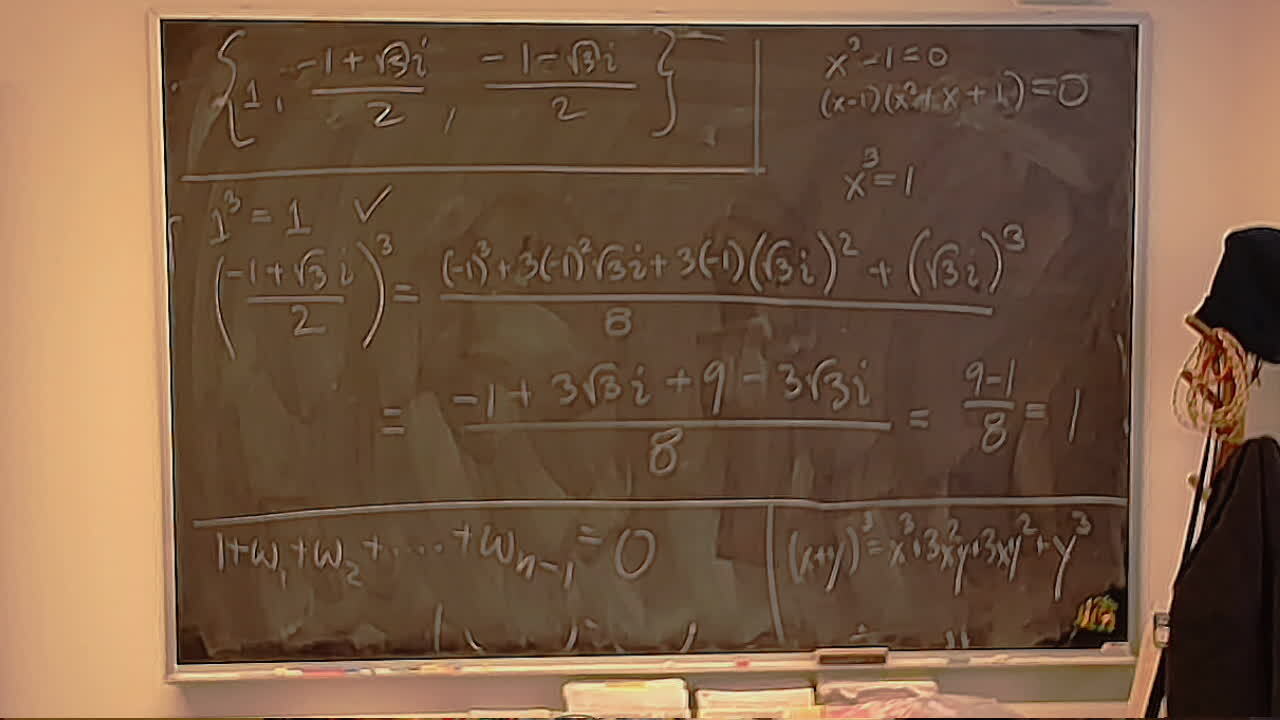 {1, (-1+√3i)/2, (-1-√3i)/2}
x³-1=0
(x-1)(x²+x+1)=0
x³=1
1³=1 ✓
((-1+√3i)/2)³ = ((-1)³+3(-1)²√3i+3(-1)(√3i)²+(√3i)³)/8
= (-1+3√3i+9-3√3i)/8 = (9-1)/8 = 1
1+ω₁+ω₂+....+ωₙ₋₁=0
(x+y)³=x³+3x²y+3xy²+y³